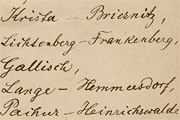 Krista – Briesnitz,
Lichtenberg – Frankenberg,
Gallisch,
Lange – Hemmersdorf,
Pachur – Heinrichswalde